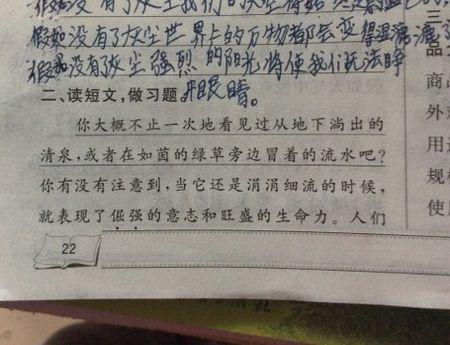 假如没有了灰尘我们的
假如没有了灰尘世界上的万物都会变得湿漉漉
假如没有了灰尘强烈的阳光将使我们无法睁
开眼睛。
二、读短文,做习题。
你大概不止一次地看见过从地下淌出的
清泉,或者在如茵的绿草旁边冒着的流水吧?
你有没有注意到,当它还是涓涓细流的时候,
就表现了倔强的意志和旺盛的生命力。人们
22
三
品
商
外
用
规
使